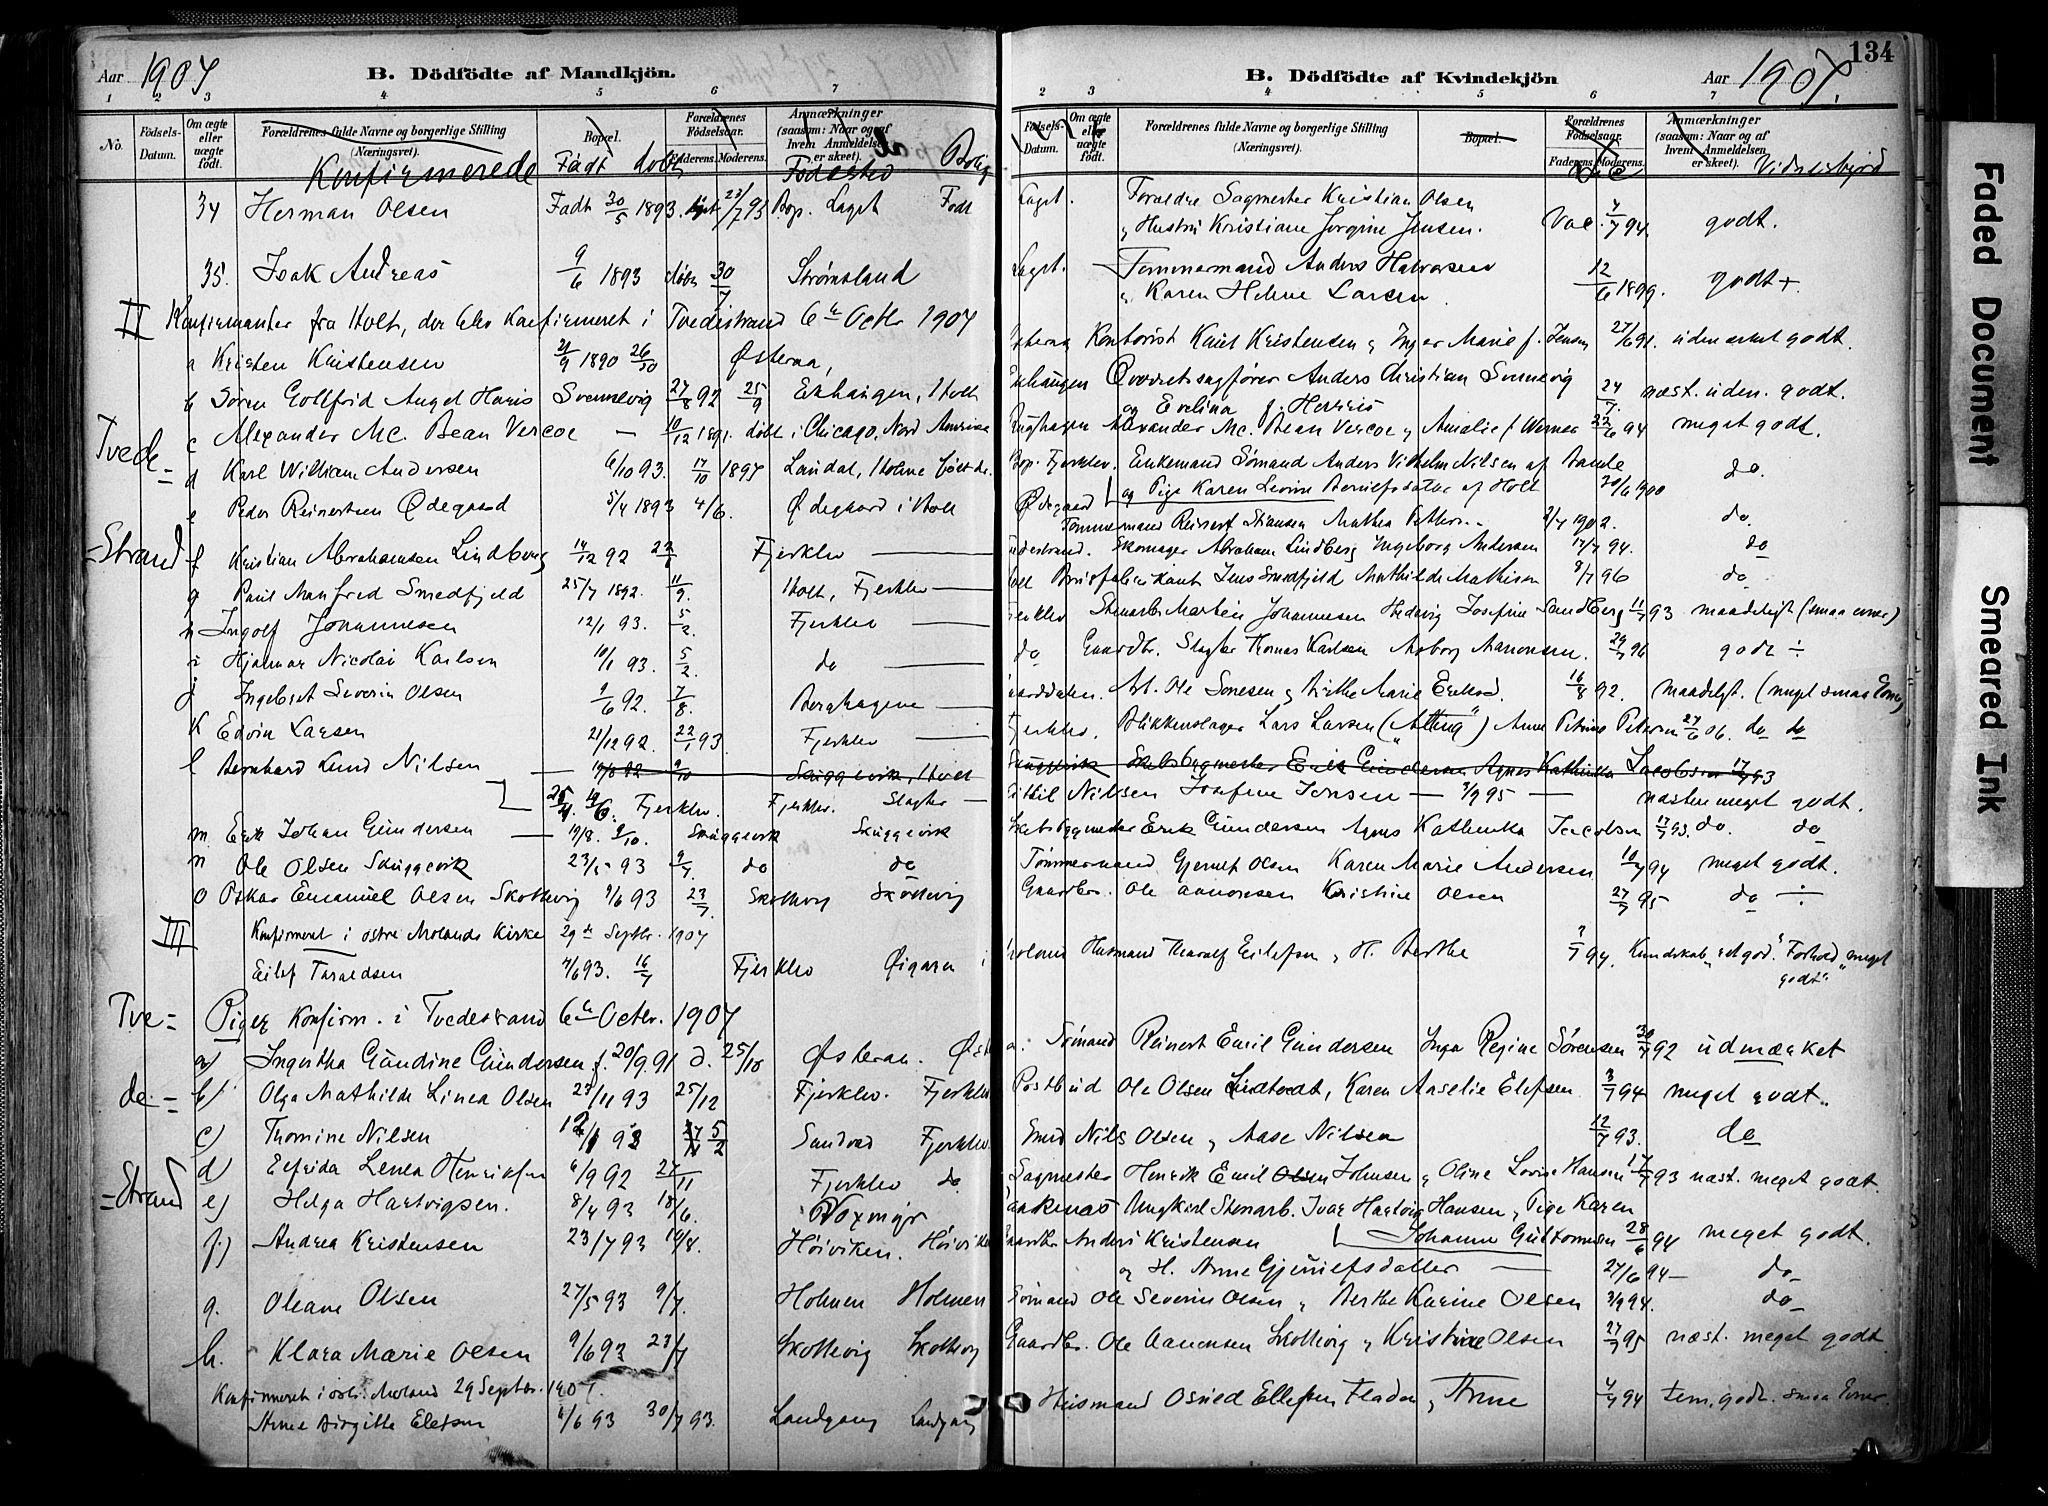 Aar 1907 B. Dödfödte af Mandkjön.
1 2 3 4 5 6 7
No. Födsels-Datum. Om ægte eller uægte födt. Forældrenes fulde Navne og borgerlige Stilling (Næringsvei). Bopæl. Forældrenes Födselsaar. Faderens. Moderens. Anmærkninger (saasom: Naar og af hvem Anmeldelsen er skeet).
Konfirmerede Født døbt Fødested Bolig
34 Herman Olsen Født 30/5 1893. 23/7 93 Bop. Laget Født
35. Isak Andreas 9/6 1893 døbt 30/7 Strømsland
II Konfirmanter fra Holt, der blev Konfirmeret i Tvedestrand 6te Octbr 1907
a Kristen Kristensen 21/9 1890 26/10 Østeraa,
b Søren Gottfrid Angel Haris Svennevig 27/8 92 25/9 Ekhaugen, Holt
Tvede=
c Alexander Mc. Bean Vercoe — 10/12 1891. døbt i Chicago, Nord Amerika
d Karl William Andersen 6/10 93. 17/10 1897 Landal, Holme
e Peder Reinertsen Ødegaard 5/4 1893 4/6. Ødegaard i Holt
=Strand
f Kristian Abrahamsen Lindberg 14/12 92 22/1 Fjerklev —
g Paul Manfred Smedfjeld 25/7 1892. 11/9. Holt, Fjerklev —
h Ingolf Johannesen 12/1 93. 5/2. Fjerklev —
i Hjalmar Nicolai Karlsen 10/1 93. 5/2. do —
j Ingebret Severin Olsen 9/6 92. 7/8. Berghagene —
K Edvin Larsen 21/12 92. 22/1 93. Fjerklev —
l Bernhard Lund Nilsen — 19/8 92 9/10 Skuggevik, Holt
25/4. 19/6. Fjerklev. Fjerklev. Slagter —
m Erik Johan Gundersen — 19/8. 9/10. Skuggevik Skuggevik
n Ole Olsen Skuggevik 23/5 93 9/7. do do
o Oskar Emanuel Olsen Skottevig 9/6 93 23/7. Skottevig Skottevig
III Konfirmeret i østre Molands Kirke 29de Septbr. 1907
Eilef Taraldsen 7/6 93. 16/7 Fjerklev Øigaren i
Tve=
Piger Konfirm. i Tvedestrand 6te Octbr. 1907
a) Ingertha Gundine Gundersen f. 20/9.91 d. 25/10 Østeraa. Øst
de=
b) Olga Mathilde Linea Olsen 23/11 93 25/12 Fjerklev. Fjerklev
c) Thomine Nilsen 12/1 93 5/2 Sandvad Fjerklev.
=Strand
d) Elfrida Lenea Henriksen 6/9 92 27/11 Fjerklev do.
e) Helga Hartvigsen. 8/4 93 18/6. Voxmyr
f) Andrea Kristensen 23/7 93 19/8. Høiviken. Høiviken
g. Oleane Olsen 27/5 93 9/7. Holmen Holmen
h. Klara Marie Olsen 9/6 93 23/7 Skottevig Skottevig
Konfirmeret i østr. Moland 29 Septbr. 1907.
Anne Birgitte Elefsen 6/6 93 30/7 93. Landgang Landgang
134
B. Dödfödte af Kvindekjön Aar 1907.
2 3 4 5 6 7
Födsels-Datum. Om ægte eller uægte födt. Forældrenes fulde Navne og borgerlige Stilling (Næringsvei). Bopæl. Forældrenes Födselsaar. Faderens. Moderens. Anmærkninger (saasom: Naar og af hvem Anmeldelsen er skeet).
Vac Vidnesbyrd
Laget. Foraldre Sagmester Kristian Olsen
„ Hustru Kristiane Jorgine Jensen. Vac. 7/7 94. godt.
Laget. — Tømmermand Anders Halvorsen
„ Karen Helene Larsen. 12/6 1899. godt +.
Østeraa Kontorist Knut Kristensen „ Inger Marie f. Jensen 27/6 91. udmærket godt.
Ekhaugen Overretssagfører Anders Christian Svennevig
og Evelina f. Harris 24/7. næst. uden. godt.
Alexander Mc. Bean Vercoe „ Amalie f. Werner 22/6 94 meget godt.
Bop. Fjerklev. Enkemand Sømand Anders Vilhelm Nilsen af Bamle
og Pige Karen Levine Berulfsdatter af Holt 20/6 1900 do.
Ødegaard Tømmermand Reinert Stiansen Mathea Petters.. 2/7 1902. do
Tvedestrand. Skomager Abraham Lindberg Ingeborg Andersen 17/7 94. do
Holt Brusfabrikant Jens Smedfjeld Mathilde Mathisen 8/7 96 do
Fjerklev Stenarb. Martin Johannesen Hedevig Josefine Sandberg 11/7 93 maadeligt (smaa evner)
do Gaardbr. Slagter Thomas Karlsen Aaborg Aanonsen. 29/7 96 godt ÷
Arb. Ole Sonesen „ Birthe Marie Eriksd. 16/8 92. maadeligt. (meget smaa Evner)
Fjerklev. Blikkenslager Lars Larsen („Alting“) Anne Petrine Petersen 27/6 06. do do
Skuggevik Skibsbygmester Erik Gundersen Agnes Kathinka Jacobsen 17/7 93
Nilsen Josefine Jensen — 3/9 95 — næsten meget godt.
Skibsbygmester Erik Gundersen Agnes Kathinka Jacobsen 17/7 93. do. do
Tømmermand Gjerulf Olsen Karen Marie Andersen 10/7 94 meget godt.
Gaardbr. Ole Aanonsen Kristine Olsen 27/7 95 do ÷
Moland Husmand Tharalf Eilefsen „ H. Berthe ?/7 94. Kundskab „ret god“. Forhold „meget godt“.
a. Sømand Reinert Emil Gundersen Inga Regine Sørensen 30/7 92 udmærket
Postbud Ole Olsen Lindtvedt, Karen Aaselie Elefsen 3/7 94 meget godt.
Smed Nils Olsen „ Aase Nilsen 12/7 93. do
Sagmester Henrik Emil Olsen Johnsen „ Oline Lovise Hansen 17/7 93 næst. meget godt.
Ungkarl Stenarb. Ivar Hartvig Hansen „ Pige Karen
Johanne Guttormsen 28/6 94 meget godt.
Gaardbr Anders Kristensen
og H. Anne Gjerulfsdatter — 27/6 94 — do
Sømand Ole Severin Olsen „ Berthe Karine Olsen 3/9 94. do
Gaardbr. Ole Aanonsen Skottevig „ Kristine Olsen 27/7 95 næst. meget godt.
Husmand Osuld Ellefsen Fladen „ Anne 4/9 94 tem. godt. smaa Evner.
Faded Document
Smeared Ink